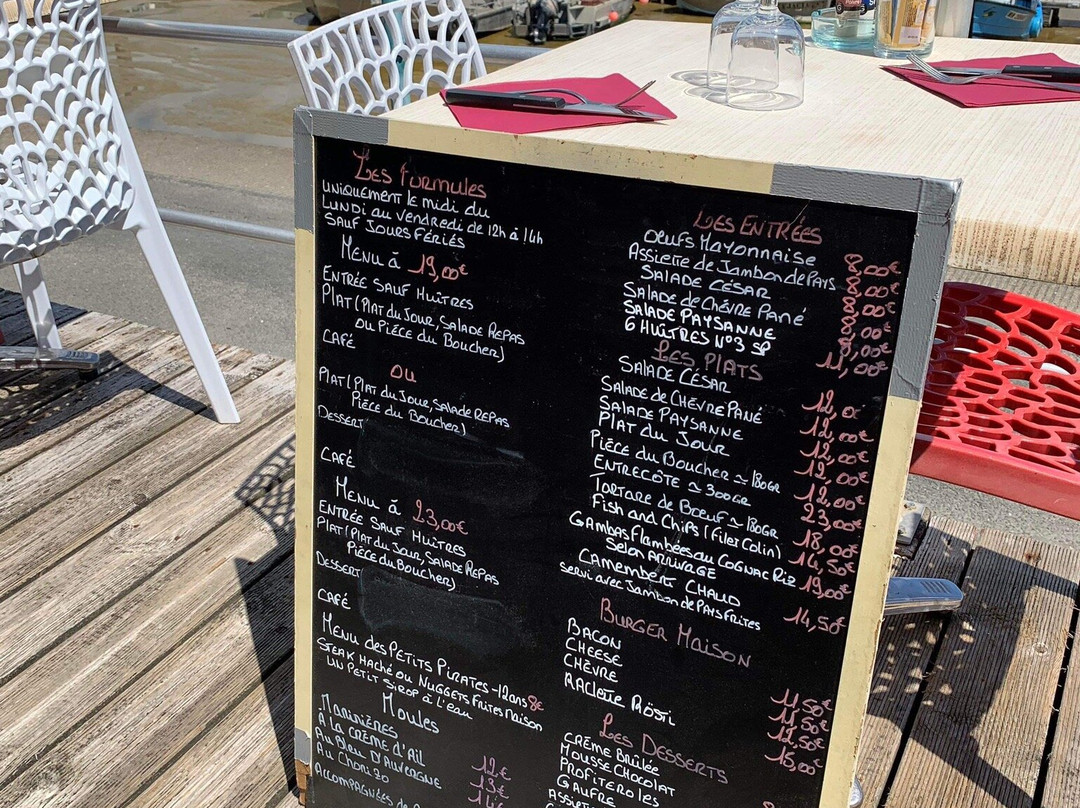 Les Formules
UNIQUEMENT le midi du
LUNDI au vendredi de 12h à 14h
SAUF JOURS FÉRIÉS
Menu à 19,00€
ENTRÉE SAUF HUÎTRES
PLAT (Plat du Jour, SALADE REPAS
ou Pièce du Boucher)
CAFÉ
OU
PLAT (Plat du Jour, Salade REPAS
Pièce du Boucher)
DESSERT
CAFÉ
Menu à 23,00€
ENTRÉE SAUF HUÎTRES
PLAT (Plat du Jour, SALADE REPAS
Pièce du Boucher)
DESSERT
CAFÉ
Menu des PETITS PIRATES -12ans 8€
STEAK HACHÉ ou NUGGETS FRITES MAISON
UN PETIT SIROP à l'eau
Moules
MARINIÈRES
À la CRÈME d'AIL 12€
Au Bleu D'AUVERGNE 13€
Au CHORIZO 14€
ACCOMPAGNÉES de
LES ENTRÉES
OEUFS MAYONNAISE 8,00€
ASSIETTE de JAMBON de PAYS 8,00€
SALADE CÉSAR 8,00€
SALADE de CHÈVRE PANÉ 8,00€
SALADE PAYSANNE 8,00€
6 HUÎTRES N°3 SP 11,00€
LES PLATS
SALADE CÉSAR 12,0€
SALADE de CHÈVRE PANÉ 12,00€
SALADE PAYSANNE 12,00€
PLAT du JOUR 12,00€
PIÈCE du BOUCHER ≃ 180GR 12,00€
ENTRECÔTE ≃ 300GR 23,00€
TARTARE de BOEUF ≃ 180GR 18,00€
Fish and Chips (Filet Colin) 14,50€
GAMBAS Flambées au COGNAC Riz 19,00€
Selon ARRIVAGE
CAMEMBERT CHAUD
servi avec Jambon de PAYS FRITES 14,50€
BURGER MAISON
BACON 11,50€
CHEESE 11,50€
CHÈVRE 11,50€
RACLETTE RÖSTI 15,00€
LES DESSERTS
CRÈME BRÛLÉE
MOUSSE CHOCOLAT
PROFITEROLES
GAUFRE
ASSIETTE